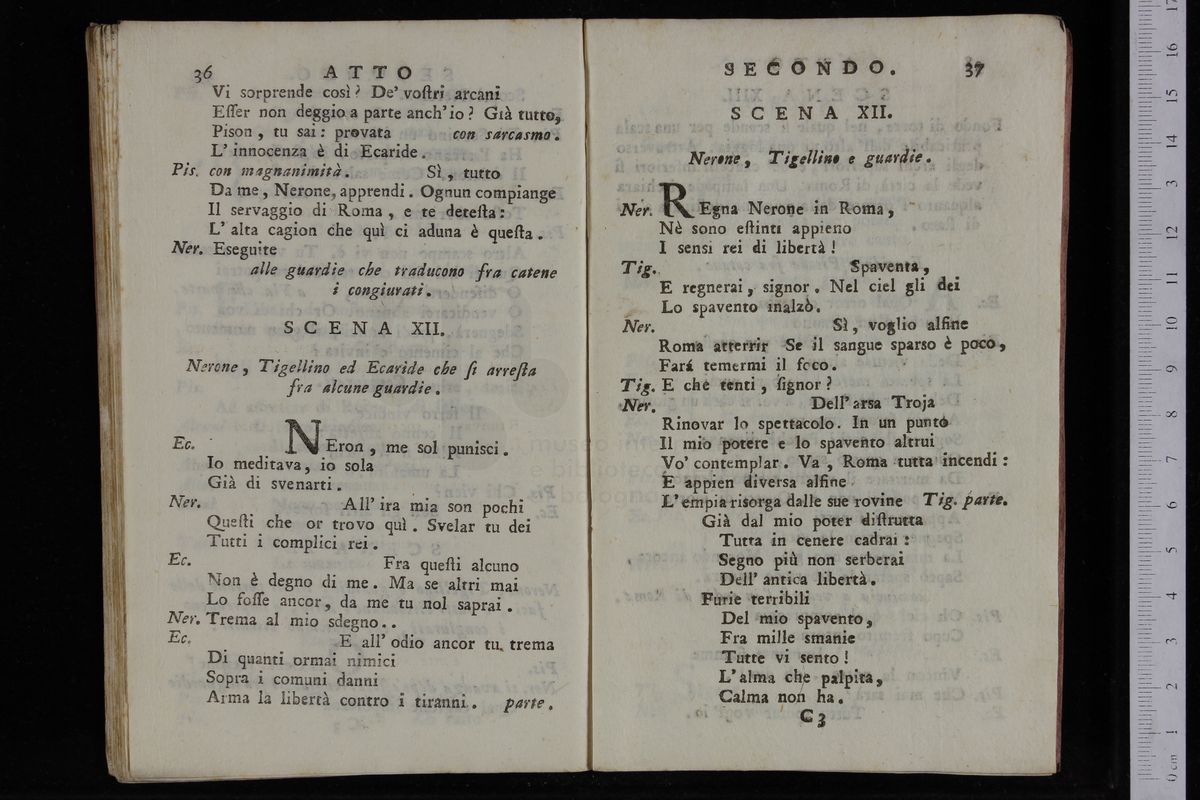 36 ATTO
Vi sorprende così? De' voſtri arcani
Eſſer non deggio a parte anch'io? Già tutto,
Pison, tu sai: provata con sarcasmo.
L'innocenza è di Ecaride.
Pis. con magnanimità. Sì, tutto
Da me, Nerone, apprendi. Ognun compiange
Il servaggio di Roma, e te deteſta:
L'alta cagion che quì ci aduna è queſta.
Ner. Eseguite
alle guardie che traducono fra catene
i congiurati.
SCENA XII.
Nerone, Tigellino ed Ecaride che ſi arreſta
fra alcune guardie.
Ec. NEron, me sol punisci.
Io meditava, io sola
Già di svenarti.
Ner. All'ira mia son pochi
Queſti che or trovo quì. Svelar tu dei
Tutti i complici rei.
Ec. Fra queſti alcuno
Non è degno di me. Ma se altri mai
Lo foſſe ancor, da me tu nol saprai.
Ner. Trema al mio sdegno..
Ec. E all'odio ancor tu trema
Di quanti ormai nimici
Sopra i comuni danni
Arma la libertà contro i tiranni. parte.
SECONDO. 37
SCENA XII.
Nerone, Tigellino e guardie.
Ner. REgna Nerone in Roma,
Nè sono eſtinti appieno
I sensi rei di libertà!
Tig. Spaventa,
E regnerai, signor. Nel ciel gli dei
Lo spavento inalzò.
Ner. Sì, voglio alfine
Roma atterrir Se il sangue sparso è poco,
Farà temermi il foco.
Tig. E che tenti, ſignor?
Ner. Dell'arsa Troja
Rinovar lo spettacolo. In un punto
Il mio potere e lo spavento altrui
Vo' contemplar. Va, Roma tutta incendi:
E appien diversa alfine
L'empia risorga dalle sue rovine Tig. parte.
Già dal mio poter diſtrutta
Tutta in cenere cadrai:
Segno più non serberai
Dell'antica libertà.
Furie terribili
Del mio spavento,
Fra mille smanie
Tutte vi sento!
L'alma che palpita,
Calma non ha.
C3